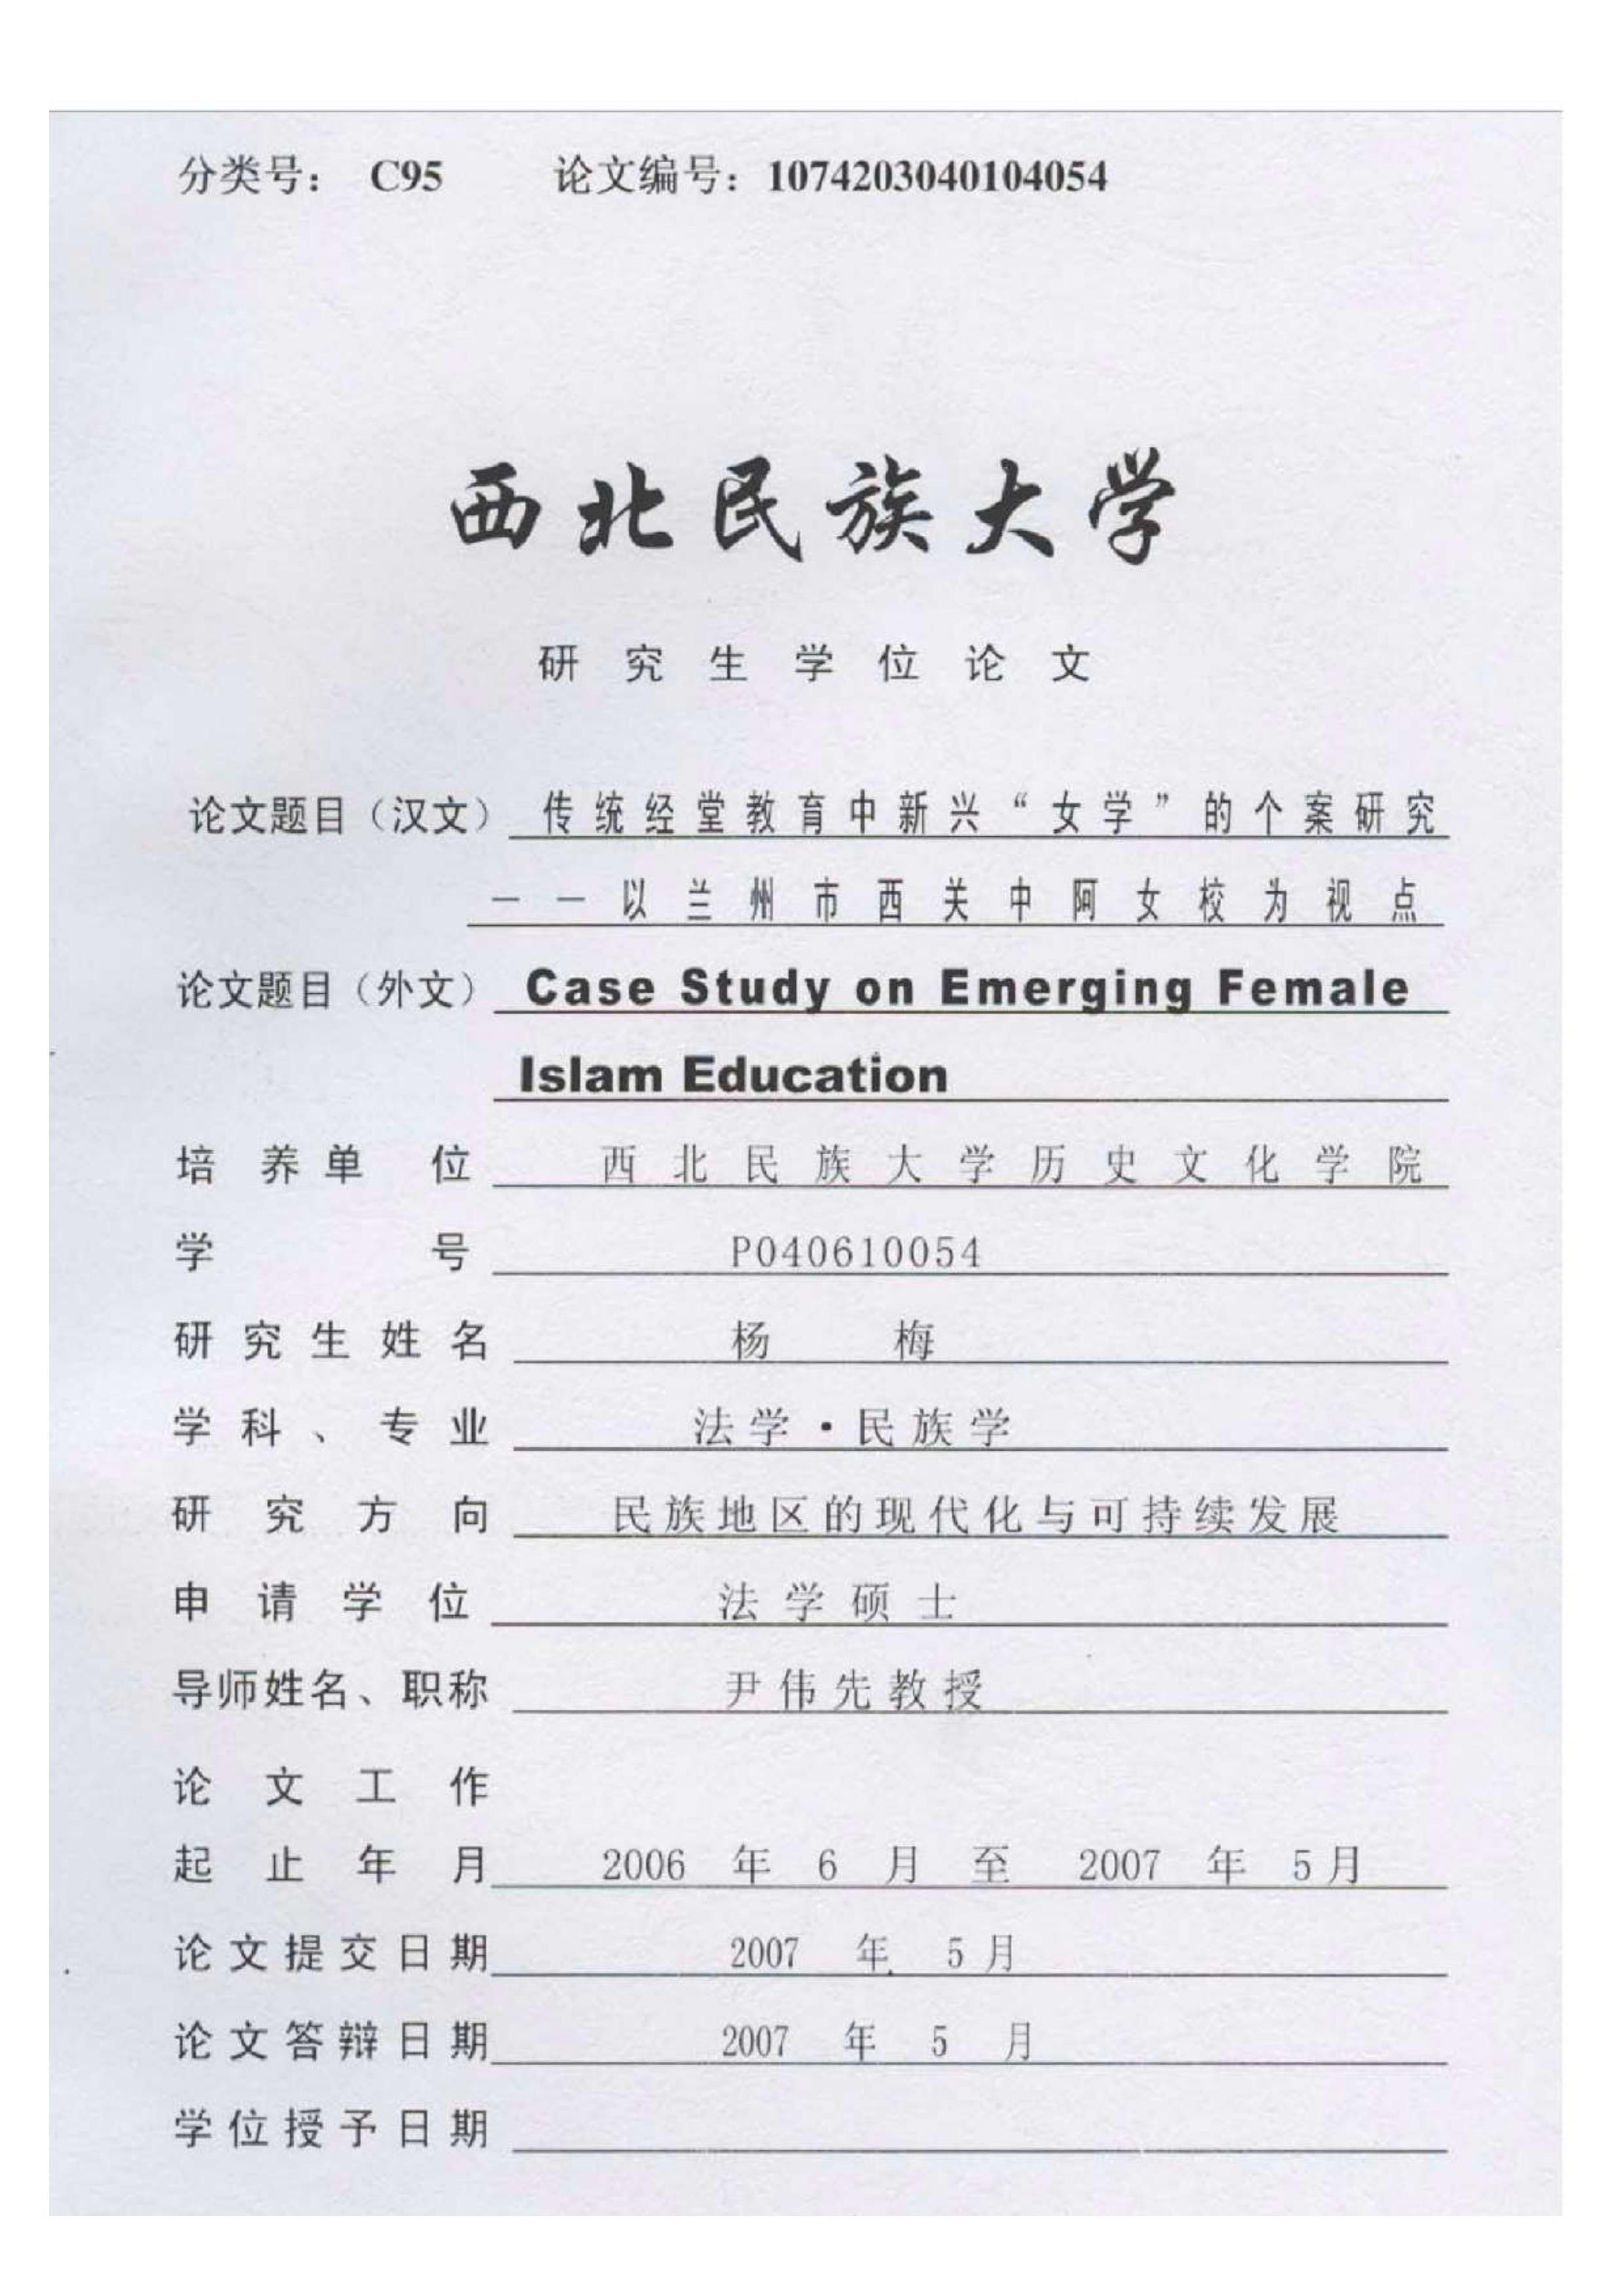 分类号： C95 论文编号：1074203040104054
西北民族大学
研究生学位论文
论文题目（汉文） 传统经堂教育中新兴“女学”的个案研究
——以兰州市西关中阿女校为视点
论文题目（外文） Case Study on Emerging Female
Islam Education
培养单位 西北民族大学历史文化学院
学号 P040610054
研究生姓名 杨梅
学科、专业 法学·民族学
研究方向 民族地区的现代化与可持续发展
申请学位 法学硕士
导师姓名、职称 尹伟先教授
论文工作
起止年月 2006 年 6 月 至 2007 年 5月
论文提交日期 2007 年 5月
论文答辩日期 2007 年 5 月
学位授予日期